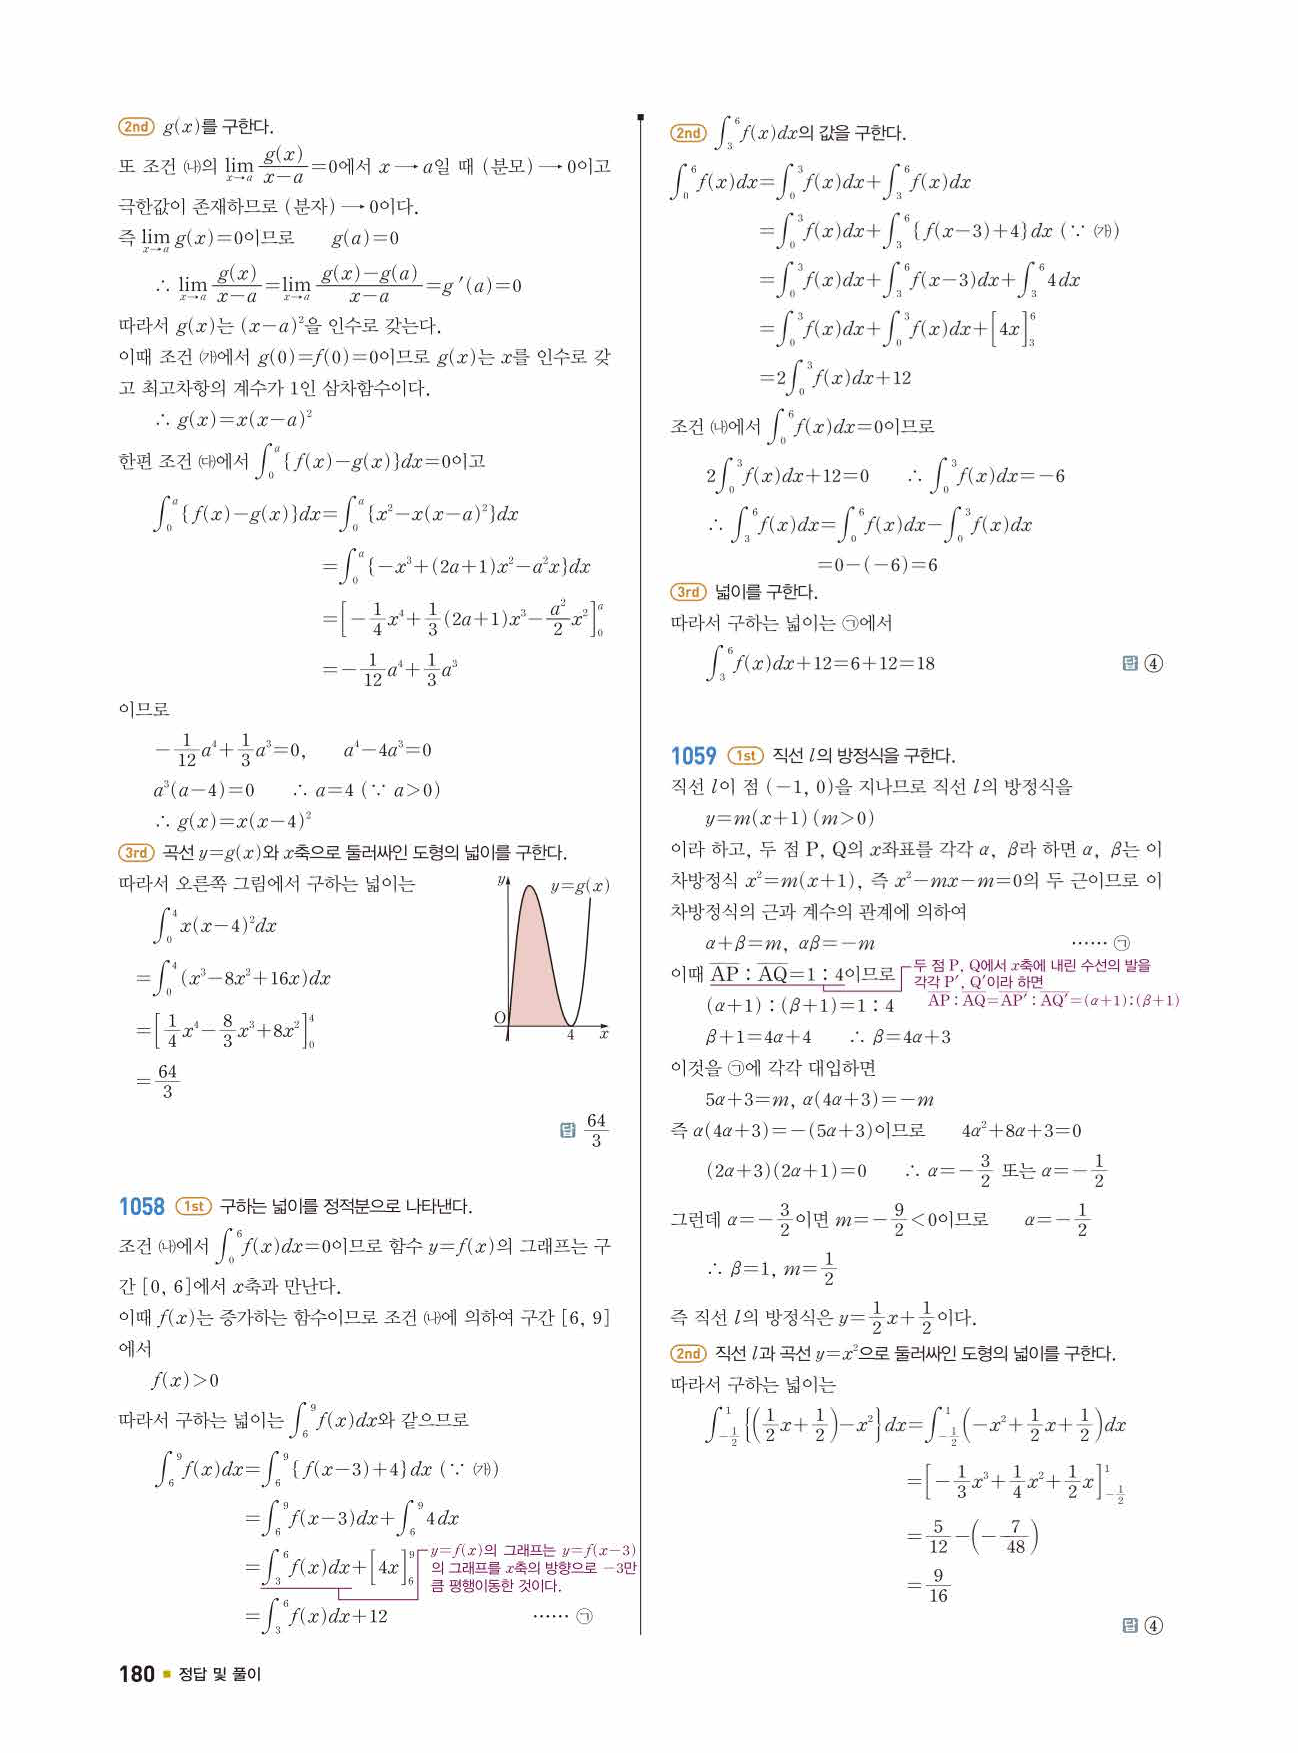 2nd g(x)를 구한다.
또 조건 ㈏의 lim_{x→a} g(x)/(x−a)=0에서 x → a일 때 (분모) → 0이고
극한값이 존재하므로 (분자) → 0이다.
즉 lim_{x→a} g(x)=0이므로 g(a)=0
∴ lim_{x→a} g(x)/(x−a)=lim_{x→a} (g(x)−g(a))/(x−a)=g′(a)=0
따라서 g(x)는 (x−a)²을 인수로 갖는다.
이때 조건 ㈎에서 g(0)=f(0)=0이므로 g(x)는 x를 인수로 갖
고 최고차항의 계수가 1인 삼차함수이다.
∴ g(x)=x(x−a)²
한편 조건 ㈐에서 ∫_0^a {f(x)−g(x)}dx=0이고
∫_0^a {f(x)−g(x)}dx=∫_0^a {x²−x(x−a)²}dx
=∫_0^a {−x³+(2a+1)x²−a²x}dx
=[−1/4 x⁴+1/3 (2a+1)x³−a²/2 x²]_0^a
=−1/12 a⁴+1/3 a³
이므로
−1/12 a⁴+1/3 a³=0, a⁴−4a³=0
a³(a−4)=0 ∴ a=4 (∵ a>0)
∴ g(x)=x(x−4)²
3rd 곡선 y=g(x)와 x축으로 둘러싸인 도형의 넓이를 구한다.
따라서 오른쪽 그림에서 구하는 넓이는
∫_0^4 x(x−4)²dx
=∫_0^4 (x³−8x²+16x)dx
=[1/4 x⁴−8/3 x³+8x²]_0^4
=64/3
y y=g(x)
O 4 x
답 64/3
1058 1st 구하는 넓이를 정적분으로 나타낸다.
조건 ㈏에서 ∫_0^6 f(x)dx=0이므로 함수 y=f(x)의 그래프는 구
간 [0, 6]에서 x축과 만난다.
이때 f(x)는 증가하는 함수이므로 조건 ㈏에 의하여 구간 [6, 9]
에서
f(x)>0
따라서 구하는 넓이는 ∫_6^9 f(x)dx와 같으므로
∫_6^9 f(x)dx=∫_6^9 {f(x−3)+4}dx (∵ ㈎)
=∫_6^9 f(x−3)dx+∫_6^9 4dx
=∫_3^6 f(x)dx+[4x]_6^9
y=f(x)의 그래프는 y=f(x−3)
의 그래프를 x축의 방향으로 −3만
큼 평행이동한 것이다.
=∫_3^6 f(x)dx+12 …… ㉠
2nd ∫_3^6 f(x)dx의 값을 구한다.
∫_0^6 f(x)dx=∫_0^3 f(x)dx+∫_3^6 f(x)dx
=∫_0^3 f(x)dx+∫_3^6 {f(x−3)+4}dx (∵ ㈎)
=∫_0^3 f(x)dx+∫_3^6 f(x−3)dx+∫_3^6 4dx
=∫_0^3 f(x)dx+∫_0^3 f(x)dx+[4x]_3^6
=2∫_0^3 f(x)dx+12
조건 ㈏에서 ∫_0^6 f(x)dx=0이므로
2∫_0^3 f(x)dx+12=0 ∴ ∫_0^3 f(x)dx=−6
∴ ∫_3^6 f(x)dx=∫_0^6 f(x)dx−∫_0^3 f(x)dx
=0−(−6)=6
3rd 넓이를 구한다.
따라서 구하는 넓이는 ㉠에서
∫_3^6 f(x)dx+12=6+12=18 답 ④
1059 1st 직선 l의 방정식을 구한다.
직선 l이 점 (−1, 0)을 지나므로 직선 l의 방정식을
y=m(x+1) (m>0)
이라 하고, 두 점 P, Q의 x좌표를 각각 α, β라 하면 α, β는 이
차방정식 x²=m(x+1), 즉 x²−mx−m=0의 두 근이므로 이
차방정식의 근과 계수의 관계에 의하여
α+β=m, αβ=−m …… ㉠
이때 A̅P̅ : A̅Q̅=1 : 4이므로
두 점 P, Q에서 x축에 내린 수선의 발을
각각 P′, Q′이라 하면
A̅P̅ : A̅Q̅=A̅P̅′ : A̅Q̅′=(α+1):(β+1)
(α+1) : (β+1)=1 : 4
β+1=4α+4 ∴ β=4α+3
이것을 ㉠에 각각 대입하면
5α+3=m, α(4α+3)=−m
즉 α(4α+3)=−(5α+3)이므로 4α²+8α+3=0
(2α+3)(2α+1)=0 ∴ α=−3/2 또는 α=−1/2
그런데 α=−3/2이면 m=−9/2<0이므로 α=−1/2
∴ β=1, m=1/2
즉 직선 l의 방정식은 y=1/2 x+1/2이다.
2nd 직선 l과 곡선 y=x²으로 둘러싸인 도형의 넓이를 구한다.
따라서 구하는 넓이는
∫_{−1/2}^1 {(1/2 x+1/2)−x²}dx=∫_{−1/2}^1 (−x²+1/2 x+1/2)dx
=[−1/3 x³+1/4 x²+1/2 x]_{−1/2}^1
=5/12−(−7/48)
=9/16
답 ④
180 정답 및 풀이